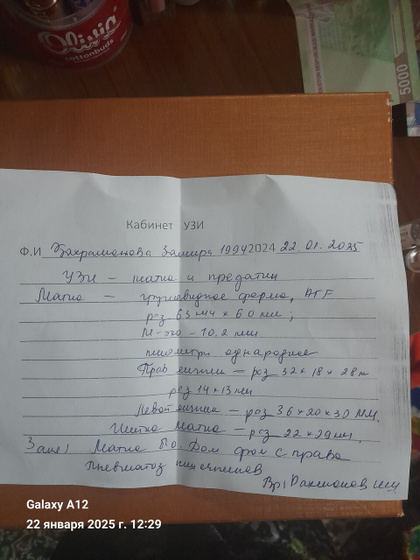 Olivia
cottonbuds
5000
Кабинет УЗИ
Ф.И Замира 1994 2024 22.01.2025
УЗИ – матка и придатки
Матка – грушевидное форма, AFF
рз 63 × 44 × 60 мм;
М-эхо – 10.2 мм
миометри однородное
Прав яичник – роз 32 × 18 × 28 м
роз 14 × 13 мм
Левой яичник – роз 36 × 20 × 30 мм.
Шейка Матка – рсз 22 × 29 мм.
Закл! Матка Яо. Дом фол с права
Пневматоз кишечников
Вр:
Galaxy A12
22 января 2025 г. 12:29